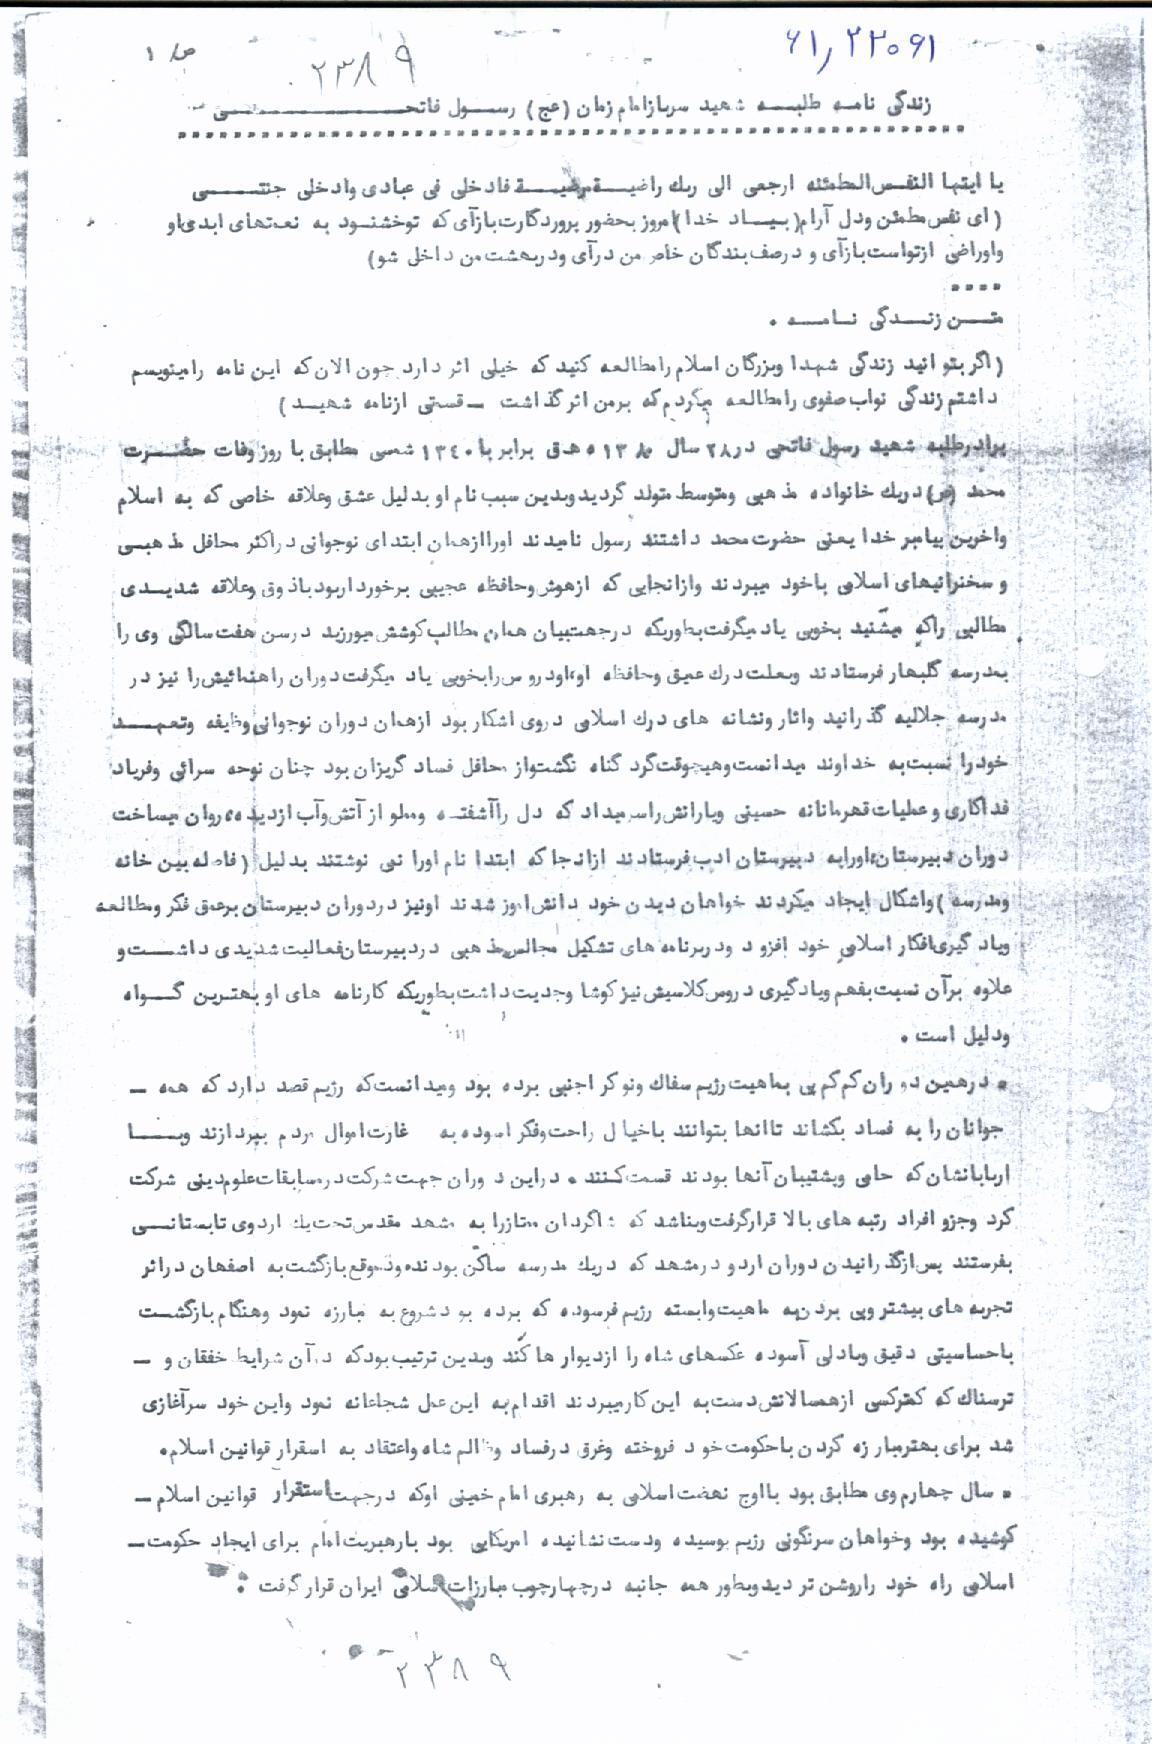 ص/ ۱
۲۳۸۹
۶۱,۲۲۰۶۱
زندگی نامه طلبه شهید سرباز امام زمان (عج) رسول فاتحی
یا ایتها النفس المطمئنه ارجعی الی ربک راضیة مرضیة فادخلی فی عبادی وادخلی جنتی
(ای نفس مطمئن ودل آرام(بیاد خدا)امروز بحضور پروردگارت بازآی که توخشنود به نعمتهای ابدی او
واوراضی ازتواست بازآی و درصف بندگان خاص من درآی ودربهشت من داخل شو)
متن زندگی نامه .
(اگر بتوانید زندگی شهدا وبزرگان اسلام رامطالعه کنید که خیلی اثر دارد چون الان که این نامه رامینویسم
داشتم زندگی نواب صفوی رامطالعه میکردم که برمن اثر گذاشت - قسمتی ازنامه شهید)
برادر طلبه شهید رسول فاتحی در ۲۸ سال ه ق برابر با ۱۳۴۰ شمسی مطابق با روز وفات حضرت
محمد (ص) دریک خانواده مذهبی ومتوسط متولد گردید وبدین سبب نام او بدلیل عشق وعلاقه خاصی که به اسلام
واخرین پیامبر خدا یعنی حضرت محمد داشتند رسول نامیدند اورا ازهمان ابتدای نوجوانی دراکثر محافل مذهبی
و سخنرانیهای اسلامی باخود میبردند وازانجایی که ازهوش وحافظه عجیبی برخوردار بود باذوق وعلاقه شدیدی
مطالبی راکه میشنید بخوبی یاد میگرفت بطوریکه درجهت بیان همان مطالب کوشش میورزید درسن هفت سالگی وی را
بمدرسه گلبهار فرستادند وبعلت درک عمیق وحافظه او،اودروس رابخوبی یاد میگرفت دوران راهنمائیش را نیز در
مدرسه جلالیه گذرانید واثار ونشانه های درک اسلامی دروی اشکار بود ازهمان دوران نوجوانی وظیفه وتعهد
خودرا نسبت به خداوند میدانست وهیچوقت گرد گناه نگشت واز محافل فساد گریزان بود چنان نوحه سرائی وفریاد
فداکاری و عملیات قهرمانانه حسینی ویارانش راسرمیداد که دل راآشفته ومملو از آتش وآب ازدیده روان میساخت
دوران دبیرستان،اورابه دبیرستان ادب فرستادند ازانجا که ابتدا نام اورا نمی نوشتند بدلیل (فاصله بین خانه
ومدرسه )واشکال ایجاد میکردند خواهان دیدن خود دانش اموز شدند اونیز دردوران دبیرستان برعمق فکر ومطالعه
ویاد گیری افکار اسلامی خود افزود ودربرنامه های تشکیل مجالس مذهبی دردبیرستان فعالیت شدیدی داشت و
علاوه برآن نسبت بفهم ویادگیری دروس کلاسیش نیز کوشا وجدیت داشت بطوریکه کارنامه های او بهترین گواه
ودلیل است .
. درهمین دوران کم کم پی بماهیت رژیم سفاک ونوکر اجنبی برده بود ومیدانست که رژیم قصد دارد که همه -
جوانان را به فساد بکشاند تاانها بتوانند باخیال راحت وفکر اسوده به غارت اموال مردم بپردازند وبا
اربابانشان که حامی وپشتیبان آنها بودند قسمت کنند . دراین دوران جهت شرکت درمسابقات علوم دینی شرکت
کرد وجزو افراد رتبه های بالا قرارگرفت وبناشد که شاگردان ممتازرا به مشهد مقدس تحت یک اردوی تابستانی
بفرستند پس ازگذرانیدن دوران اردو درمشهد که دریک مدرسه ساکن بودند وموقع بازگشت به اصفهان دراثر
تجربه های بیشتر وپی بردن به ماهیت وابسته رژیم فرسوده که برده بود شروع به مبارزه نمود وهنگام بازگشت
باحساسیتی دقیق وبادلی آسوده عکسهای شاه را ازدیوار ها کند وبدین ترتیب بودکه درآن شرایط خفقان و -
ترسناک که کمترکسی ازهمسالانش دست به این کارمیبردند اقدام به این عمل شجاعانه نمود واین خود سرآغازی
شد برای بهتر مبارزه کردن باحکومت خود فروخته وغرق درفساد وظالم شاه واعتقاد به اسقرار قوانین اسلام.
. سال چهارم وی مطابق بود بااوج نهضت اسلامی به رهبری امام خمینی اوکه درجهت استقرار قوانین اسلام -
کوشیده بود وخواهان سرنگونی رژیم بوسیده ودست نشانیده امریکایی بود بارهبریت امام برای ایجاد حکومت -
اسلامی راه خود راروشن تر دید وبطور همه جانبه درچهارچوب مبارزات اسلامی ایران قرار گرفت .
۲۳۸۹